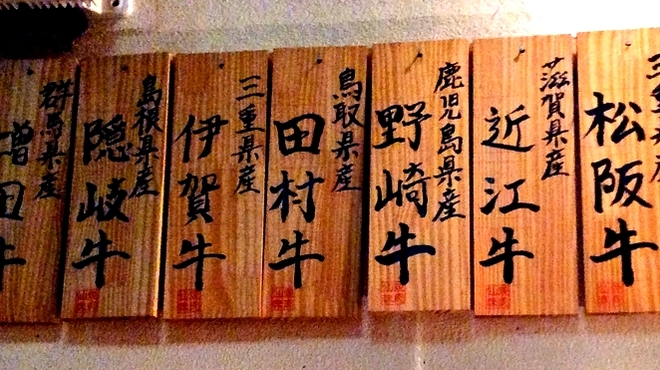 三重県産
松阪牛
滋賀県産
近江牛
鹿児島県産
野崎牛
鳥取県産
田村牛
三重県産
伊賀牛
島根県産
隠岐牛
群馬県産
増田牛